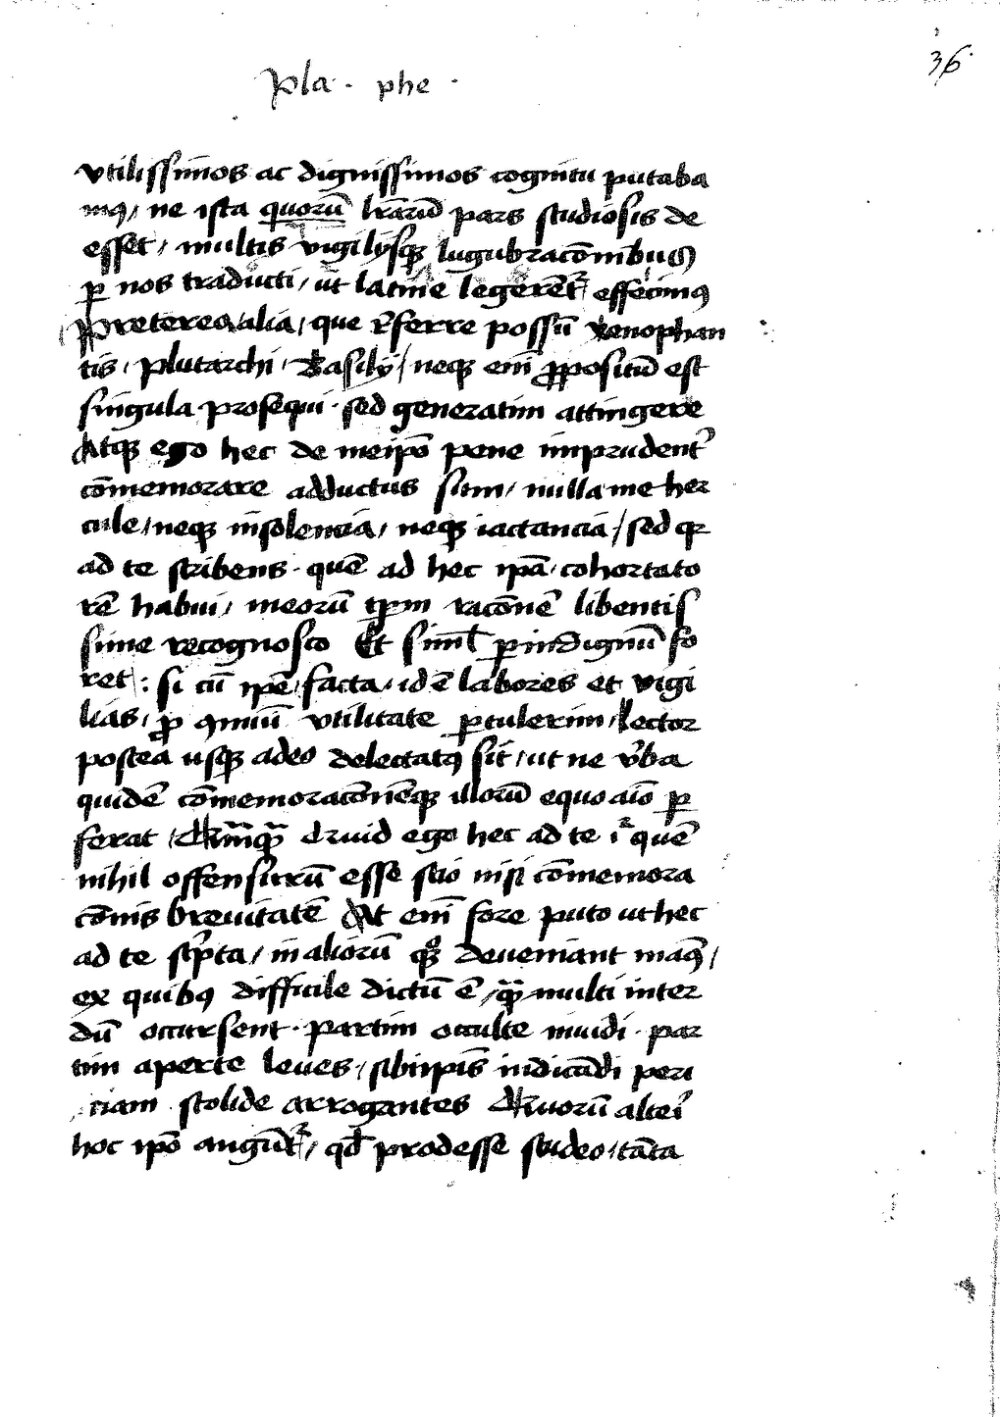 36
Pla · phe ·
vtilissimos ac dignissimos cognitu putaba
mꝰ, ne ista quorū lr̄arū pars studiosis de
esset, multis vigilijsqꝫ lugubracōnibus
ꝑ nos traducti, ut latine legerēt᷑ effecimꝰ
Pretereo alia, que r̄ferre possū xenophan
tis, Plutarchi, Basilij, neqꝫ em̄ ꝓpositū est
singula prosequi · sed generatim attingere
Atqꝫ ego hec de meip̄o pene imprudent᷑
cōmemorare adductus sum, nulla me her
cule, neqꝫ insolencia, neqꝫ iactancia, sed qꝛ
ad te scribens · quē ad hec ip̄a · cohortato
rē habui, meorū tp̄m racōnē libentis
sime recognosco Et sim̄l ꝑindignū fo
ret : si cū ip̄e, facta, idē labores et vigi
lias, ꝓ ꝯmuni vtilitate ꝑtulerim, lector
postea usqꝫ adeo delectatꝰ sit, ut ne v̄ba
quidē cōmemoracōnēqꝫ illorū equo aīo ꝑ
ferat, Quid ego hec ad te quē
nihil offensurū esse scio nisi cōmemora
cōnis breuitatē At em̄ fore puto ut hec
ad te sc̄pta, in aliorū qꝫ deueniant manꝰ,
ex quibꝰ difficile dictū ē, qm̄ multi inter
dū occursent · partim occulte inuidi · par
tim aperte leues, sibiip̄is iudicādi peri
ciam stolide arrogantes Quorū alteri
hoc ip̄o angūt᷑, qd̄ prodesse studeo, tāta